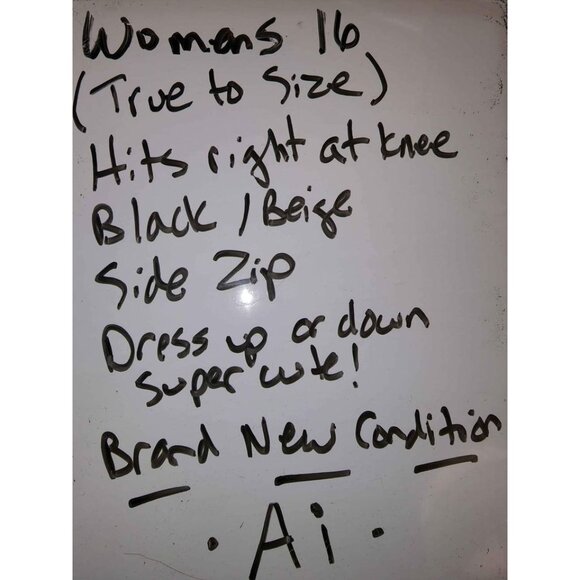 Womens 16
(True to Size)
Hits right at knee
Black / Beige
Side Zip
Dress up or down
super cute!
Brand New Condition
· Ai ·